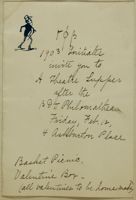 1903 Initiates
invite you to
A Theatre Supper
after the
Philomathean
Friday, Feb. 12,
4 Ashburton Place
Basket Picnic,
Valentine Box.
(all valentines to be homemade)